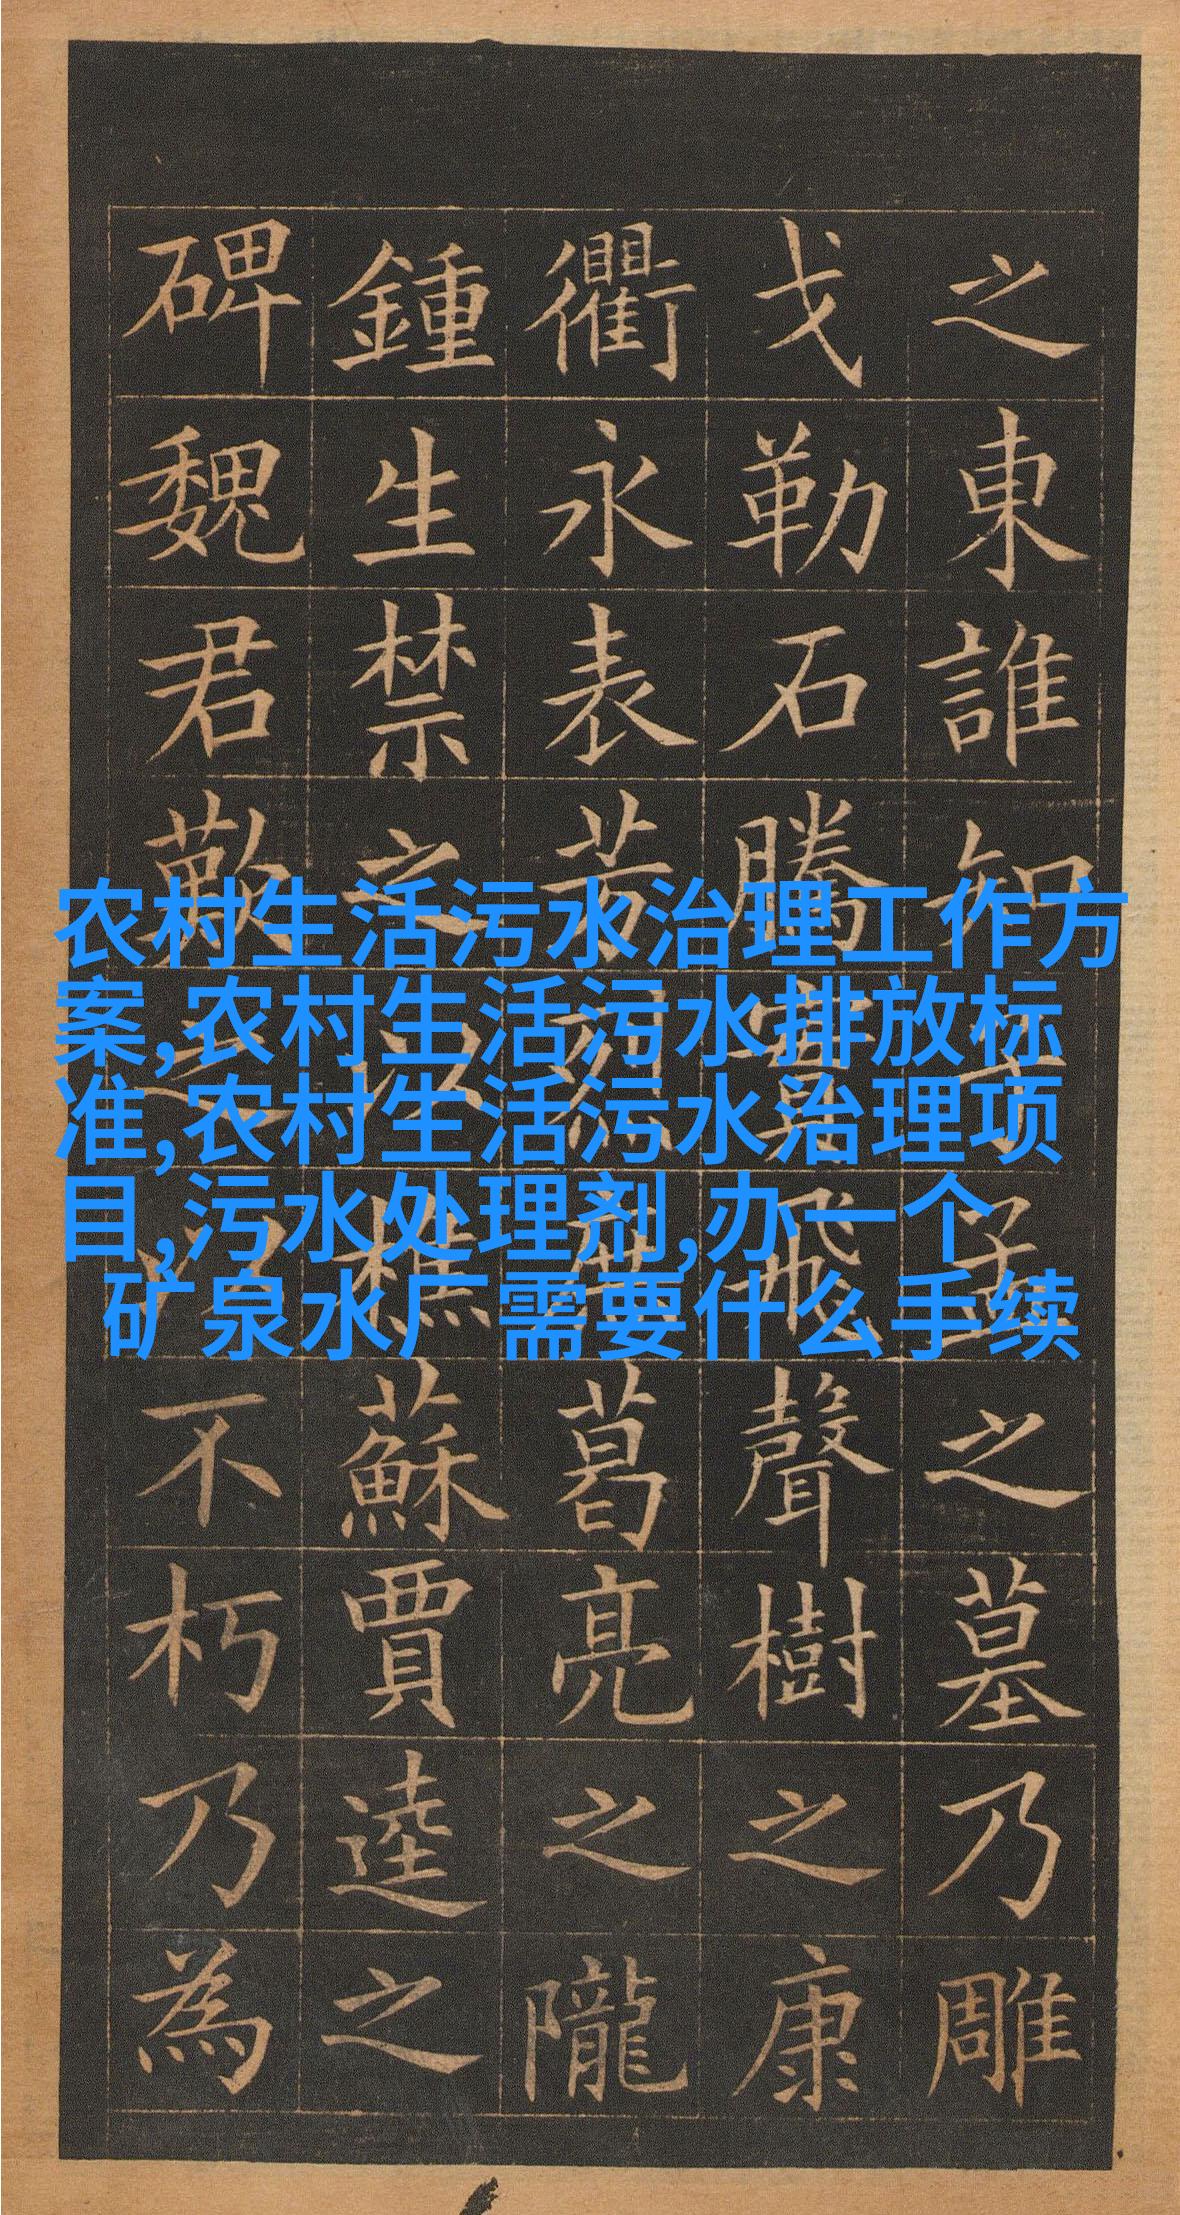 之東誰知之墓乃雕
戈勒石騰實飛聲樹之康
衢永表芳烈葛亮之隴
鍾生禁之以樵蘇賈逵之
碑魏君之以不朽乃為
农村生活污水治理工作方
案,农村生活污水排放标
准,农村生活污水治理项
目,污水处理剂,办一个
矿泉水厂需要什么手续